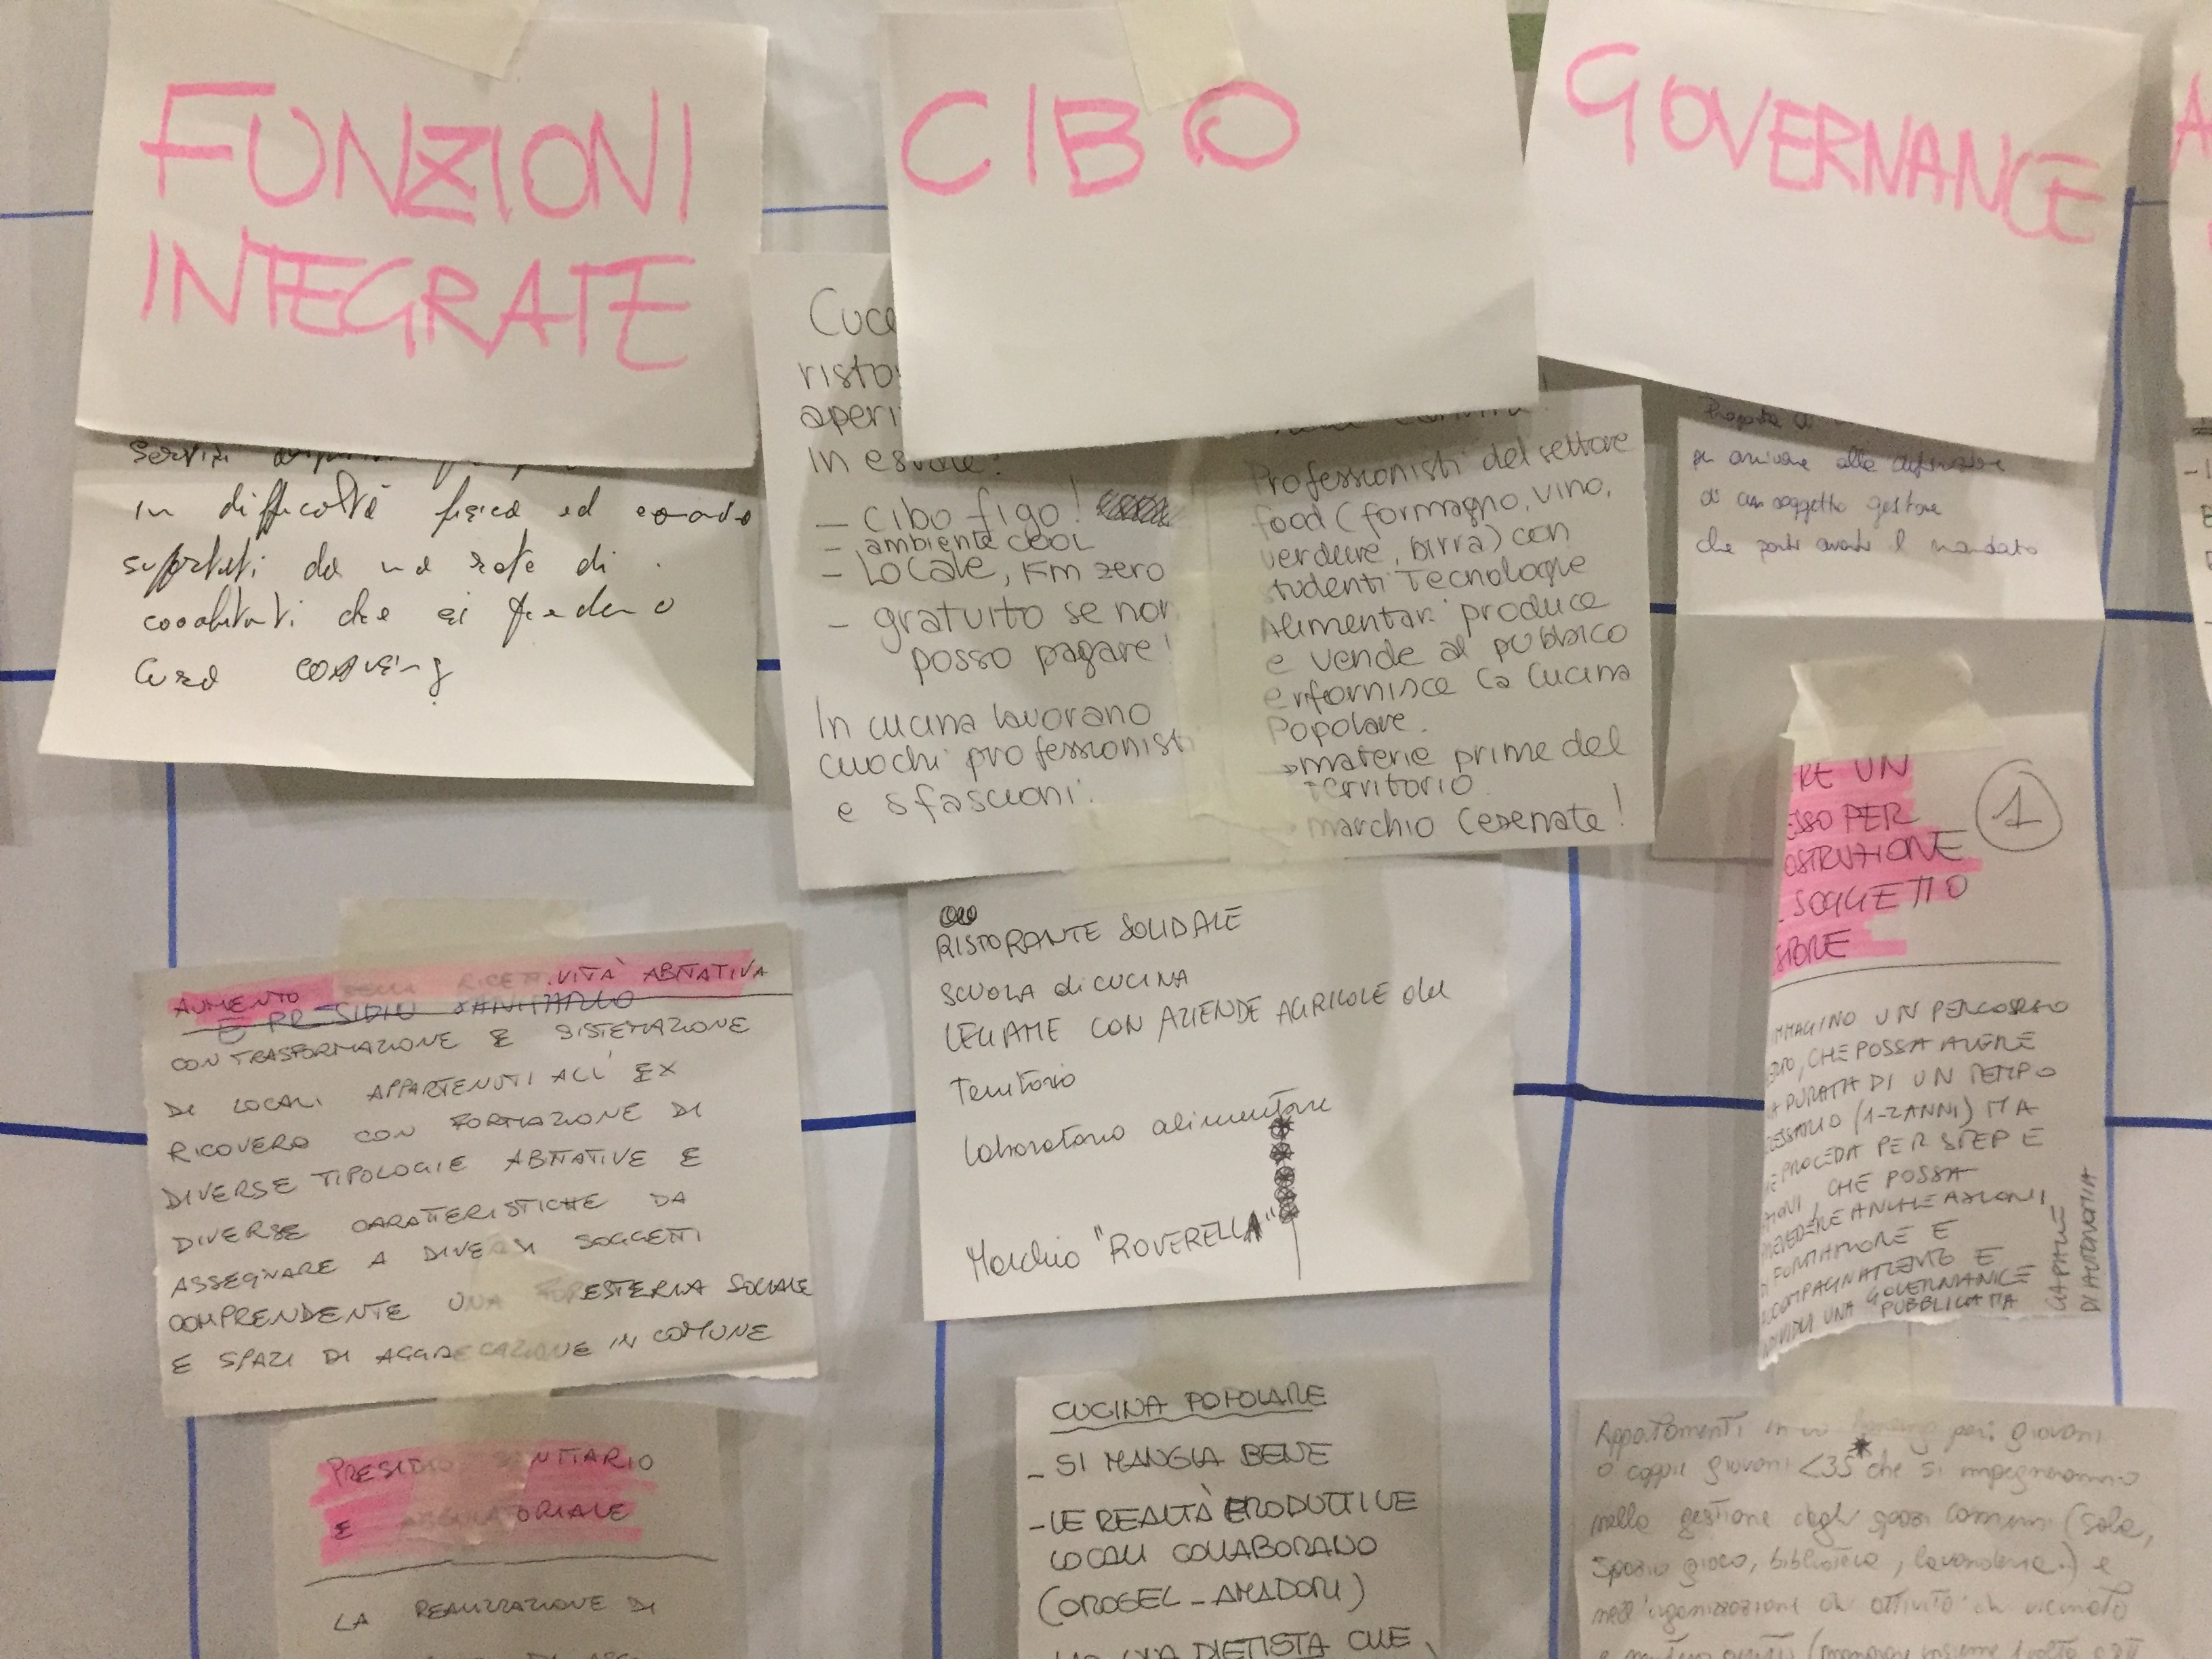 FUNZIONI
INTEGRATE
Servizi
in difficoltà fisica ed
supportati da una rete di
coabitanti che si prendono
cura
CIBO
risto
aperi
In estate?
- CIBO figo!
- ambiente COOL
- LOCALE, KM zero
- gratuito se non
posso pagare!
In cucina lavorano
cuochi professionisti
e sfascioni.
Professionisti del settore
food (formaggio, vino,
verdure, birra) con
studenti Tecnologie
Alimentari produce
e vende al pubblico
e rifornisce la Cucina
Popolare.
→ materie prime del
territorio
marchio Cesenate!
GOVERNANCE
Proposta di
per arrivare alla definizione
di un soggetto gestore
che porti avanti il mandato
1
RE UN
ESSO PER
OSTRUZIONE
SOGGETTO
STORE
MMAGINO UN PERCORSO
, CHE POSSA AVERE
A DURATA DI UN TEMPO
CESSARIO (1-2 ANNI) MA
E PROCEDA PER STEP E
ZIONI, CHE POSSA
PREVEDERE ANCHE AZIONI
DI FORMAZIONE E
ACCOMPAGNAMENTO E
UNA GOVERNANCE
PUBBLICA MA
CAPACE
DI AUTONOMIA
AUMENTO DELLA RICETTIVITÀ ABITATIVA
E PRESIDIO SANITARIO
CON TRASFORMAZIONE E SISTEMAZIONE
DI LOCALI APPARTENUTI ALL'EX
RICOVERO CON FORMAZIONE DI
DIVERSE TIPOLOGIE ABITATIVE E
DIVERSE CARATTERISTICHE DA
ASSEGNARE A DIVERSI SOGGETTI
COMPRENDENTE UNA FORESTERIA SOCIALE
E SPAZI DI AGGREGAZIONE IN COMUNE
RISTORANTE SOLIDALE
SCUOLA di CUCINA
LEGAME CON AZIENDE AGRICOLE del
Territorio
laboratorio alimentare
Marchio "ROVERELLA"
PRESIDIO SANITARIO
E AMBULATORIALE
LA REALIZZAZIONE DI
CUCINA POPOLARE
- SI MANGIA BENE
- LE REALTÀ PRODUTTIVE
LOCALI COLLABORANO
(OROGEL - AMADORI)
DIETISTA CHE
Appartamenti in co housing per giovani
o coppie giovani <35* che si impegneranno
nella gestione degli spazi comuni (sala,
spazio gioco, biblioteca, lavanderia..) e
nell'organizzazione di attività di vicinato